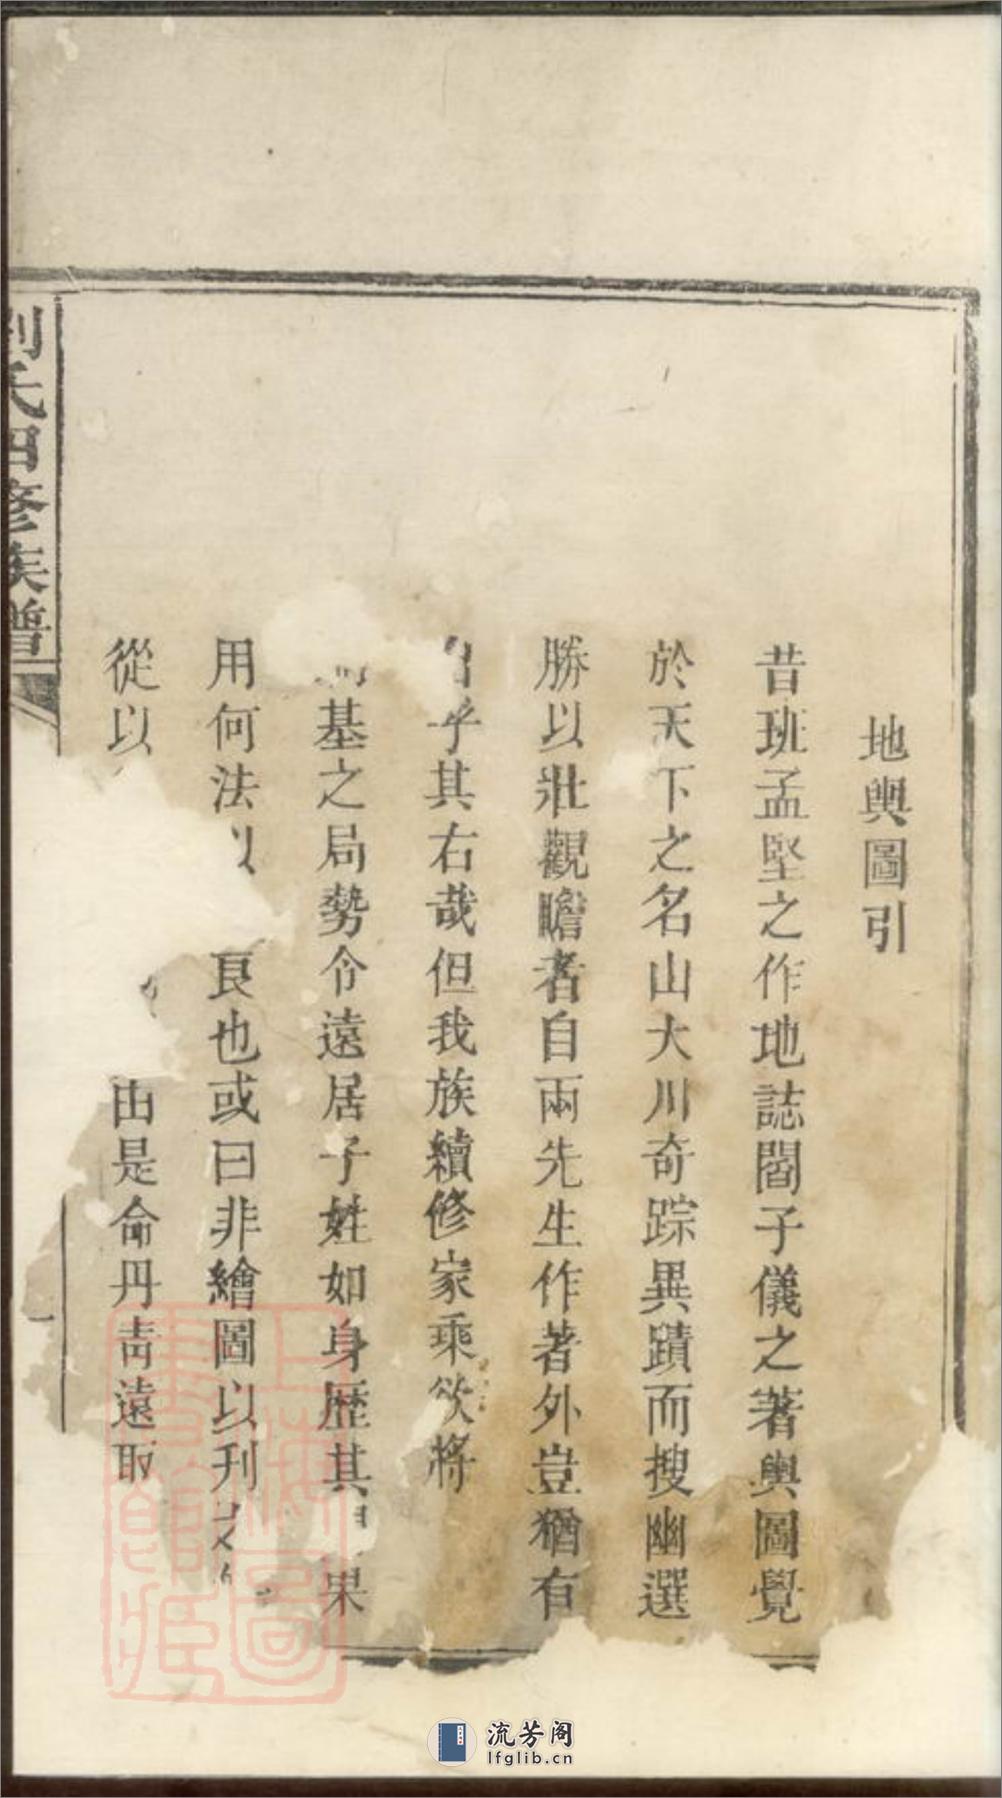 地輿圖引
昔班孟堅之作地誌閻子儀之著輿圖覺
於天下之名山大川奇踪異蹟而搜幽選
勝以壯觀瞻者自兩先生作著外豈猶有
乎其右哉但我族續修家乘欲將
基之局勢令遠居子姓如身歷其果
用何法以良也或曰非繪圖以刋
從以由是命丹青遠取
劉氏四修族譜
一
上海圖書館藏
流芳阁
lfglib.cn